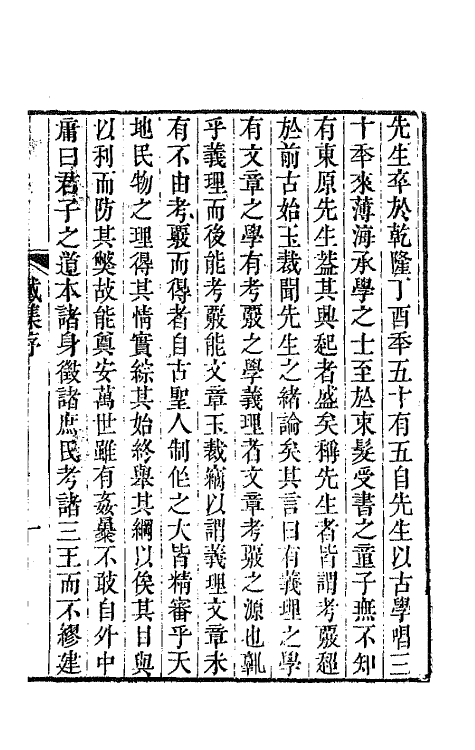 先生卒於乾隆丁酉秊五十有五自先生以古學唱三
十秊來薄海承學之士至於束髮受書之童子無不知
有東原先生葢其興起者盛矣稱先生者皆謂考覈超
於前古始玉裁聞先生之緒論矣其言曰有義理之學
有文章之學有考覈之學義理者文章考覈之源也孰
乎義理而後能考覈能文章玉裁竊以謂義理文章未
有不由考覈而得者自古聖人制作之大皆精審乎天
地民物之理得其情實綜其始終舉其綱以俟其目與
以利而防其獘故能奠安萬世雖有姦暴不敢自外中
庸曰君子之道本諸身徵諸庶民考諸三王而不繆建
戴集序
一